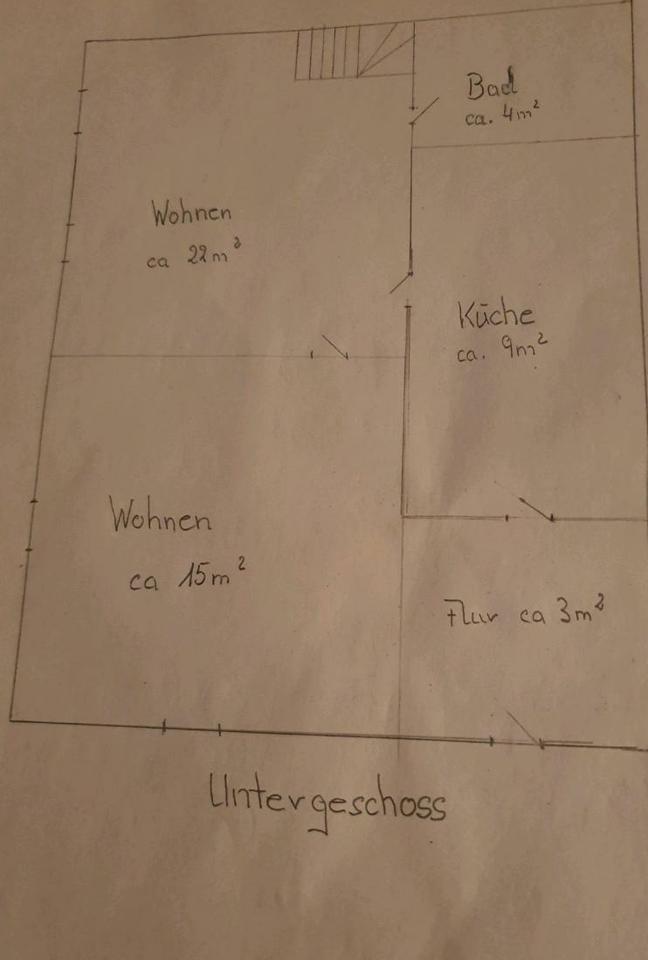 Bad
ca. 4m²
Wohnen
ca 22m²
Küche
ca. 9m²
Wohnen
ca 15m²
Flur ca 3m²
Untergeschoss